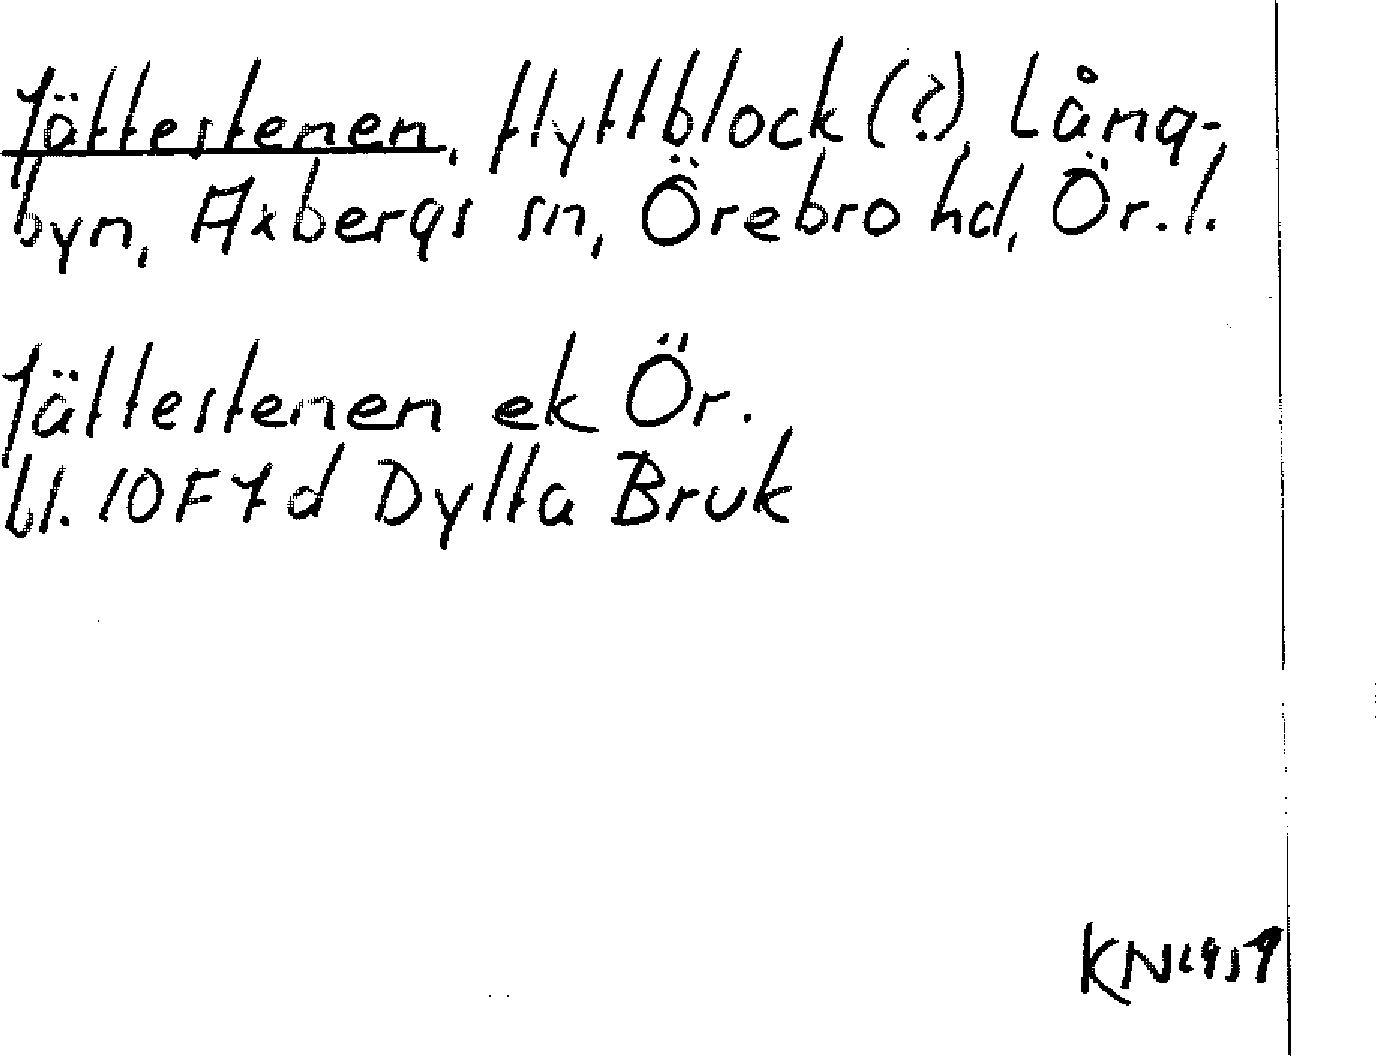 Jättestenen, flyttblock (?), Lång-
byn, Axbergs sn, Örebro hd, Ör. l.
Jättestenen ek Ör.
bl. 10F7d Dylta Bruk
KN 1959